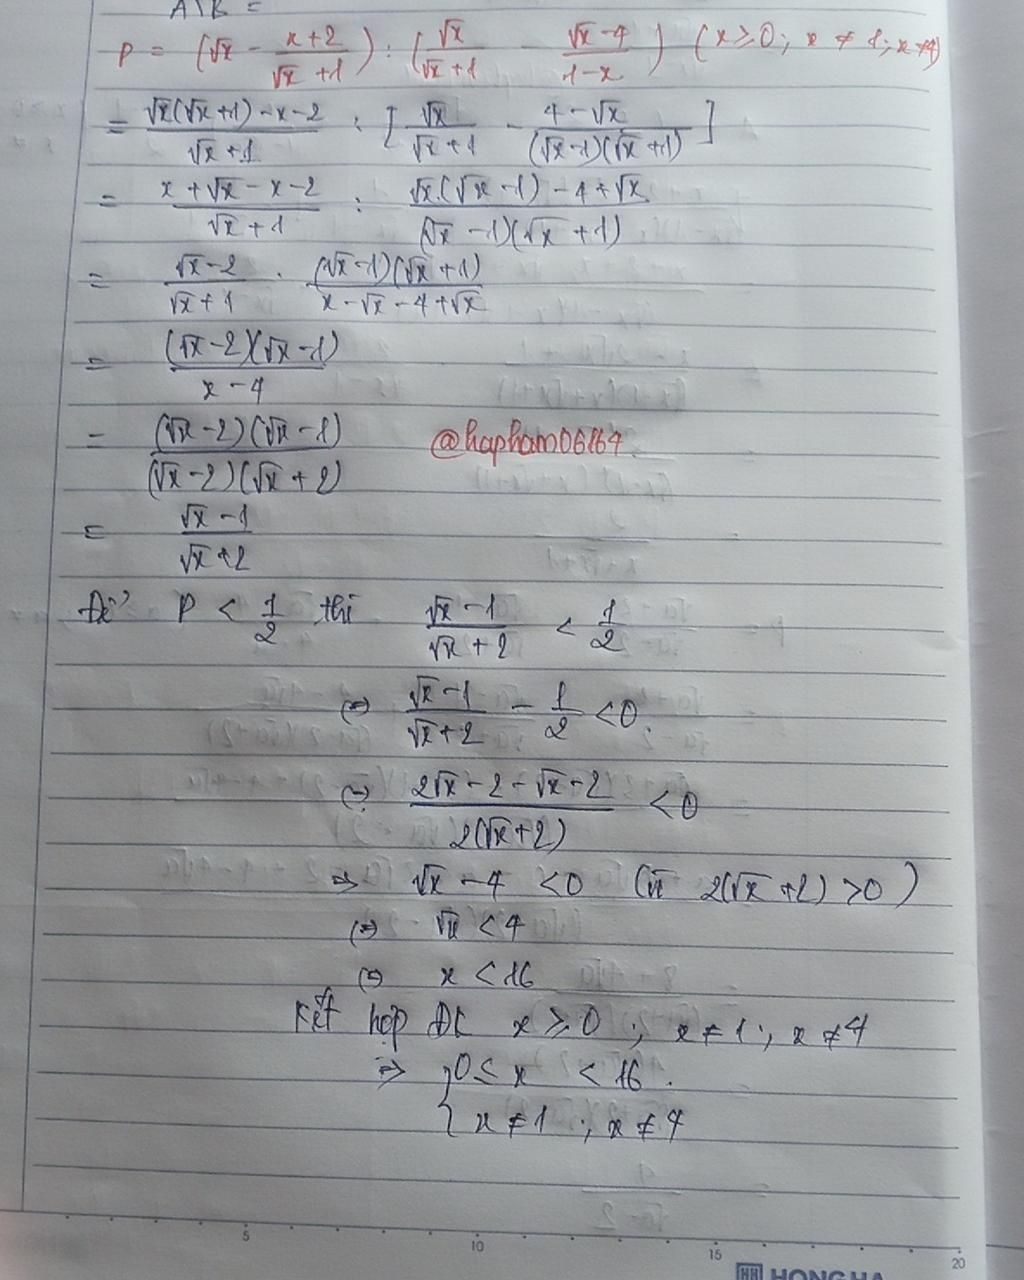 A\B =
P = (√x - (x+2)/(√x+1)) : (√x/(√x+1) - (√x-4)/(1-x)) (x ≥ 0; x ≠ 1; x ≠ 4)
= (√x(√x+1) - x - 2)/(√x+1) : [√x/(√x+1) - (4-√x)/((√x-1)(√x+1))]
= (x + √x - x - 2)/(√x+1) : (√x.(√x-1) - 4 + √x)/((√x-1)(√x+1))
= (√x-2)/(√x+1) . ((√x-1)(√x+1))/(x - √x - 4 + √x)
= ((√x-2)(√x-1))/(x-4)
= ((√x-2)(√x-1))/((√x-2)(√x+2)) @hapham06164
= (√x-1)/(√x+2)
Để P < 1/2 thì (√x-1)/(√x+2) < 1/2
⇔ (√x-1)/(√x+2) - 1/2 < 0.
⇔ (2√x - 2 - √x - 2)/(2(√x+2)) < 0
⇒ √x - 4 < 0 (vì 2(√x+2) > 0)
⇔ √x < 4
⇔ x < 16
Kết hợp ĐK x ≥ 0; x ≠ 1; x ≠ 4
⇒ { 0 ≤ x < 16.
x ≠ 1; x ≠ 4
5 10 15 20
HH HONG HA